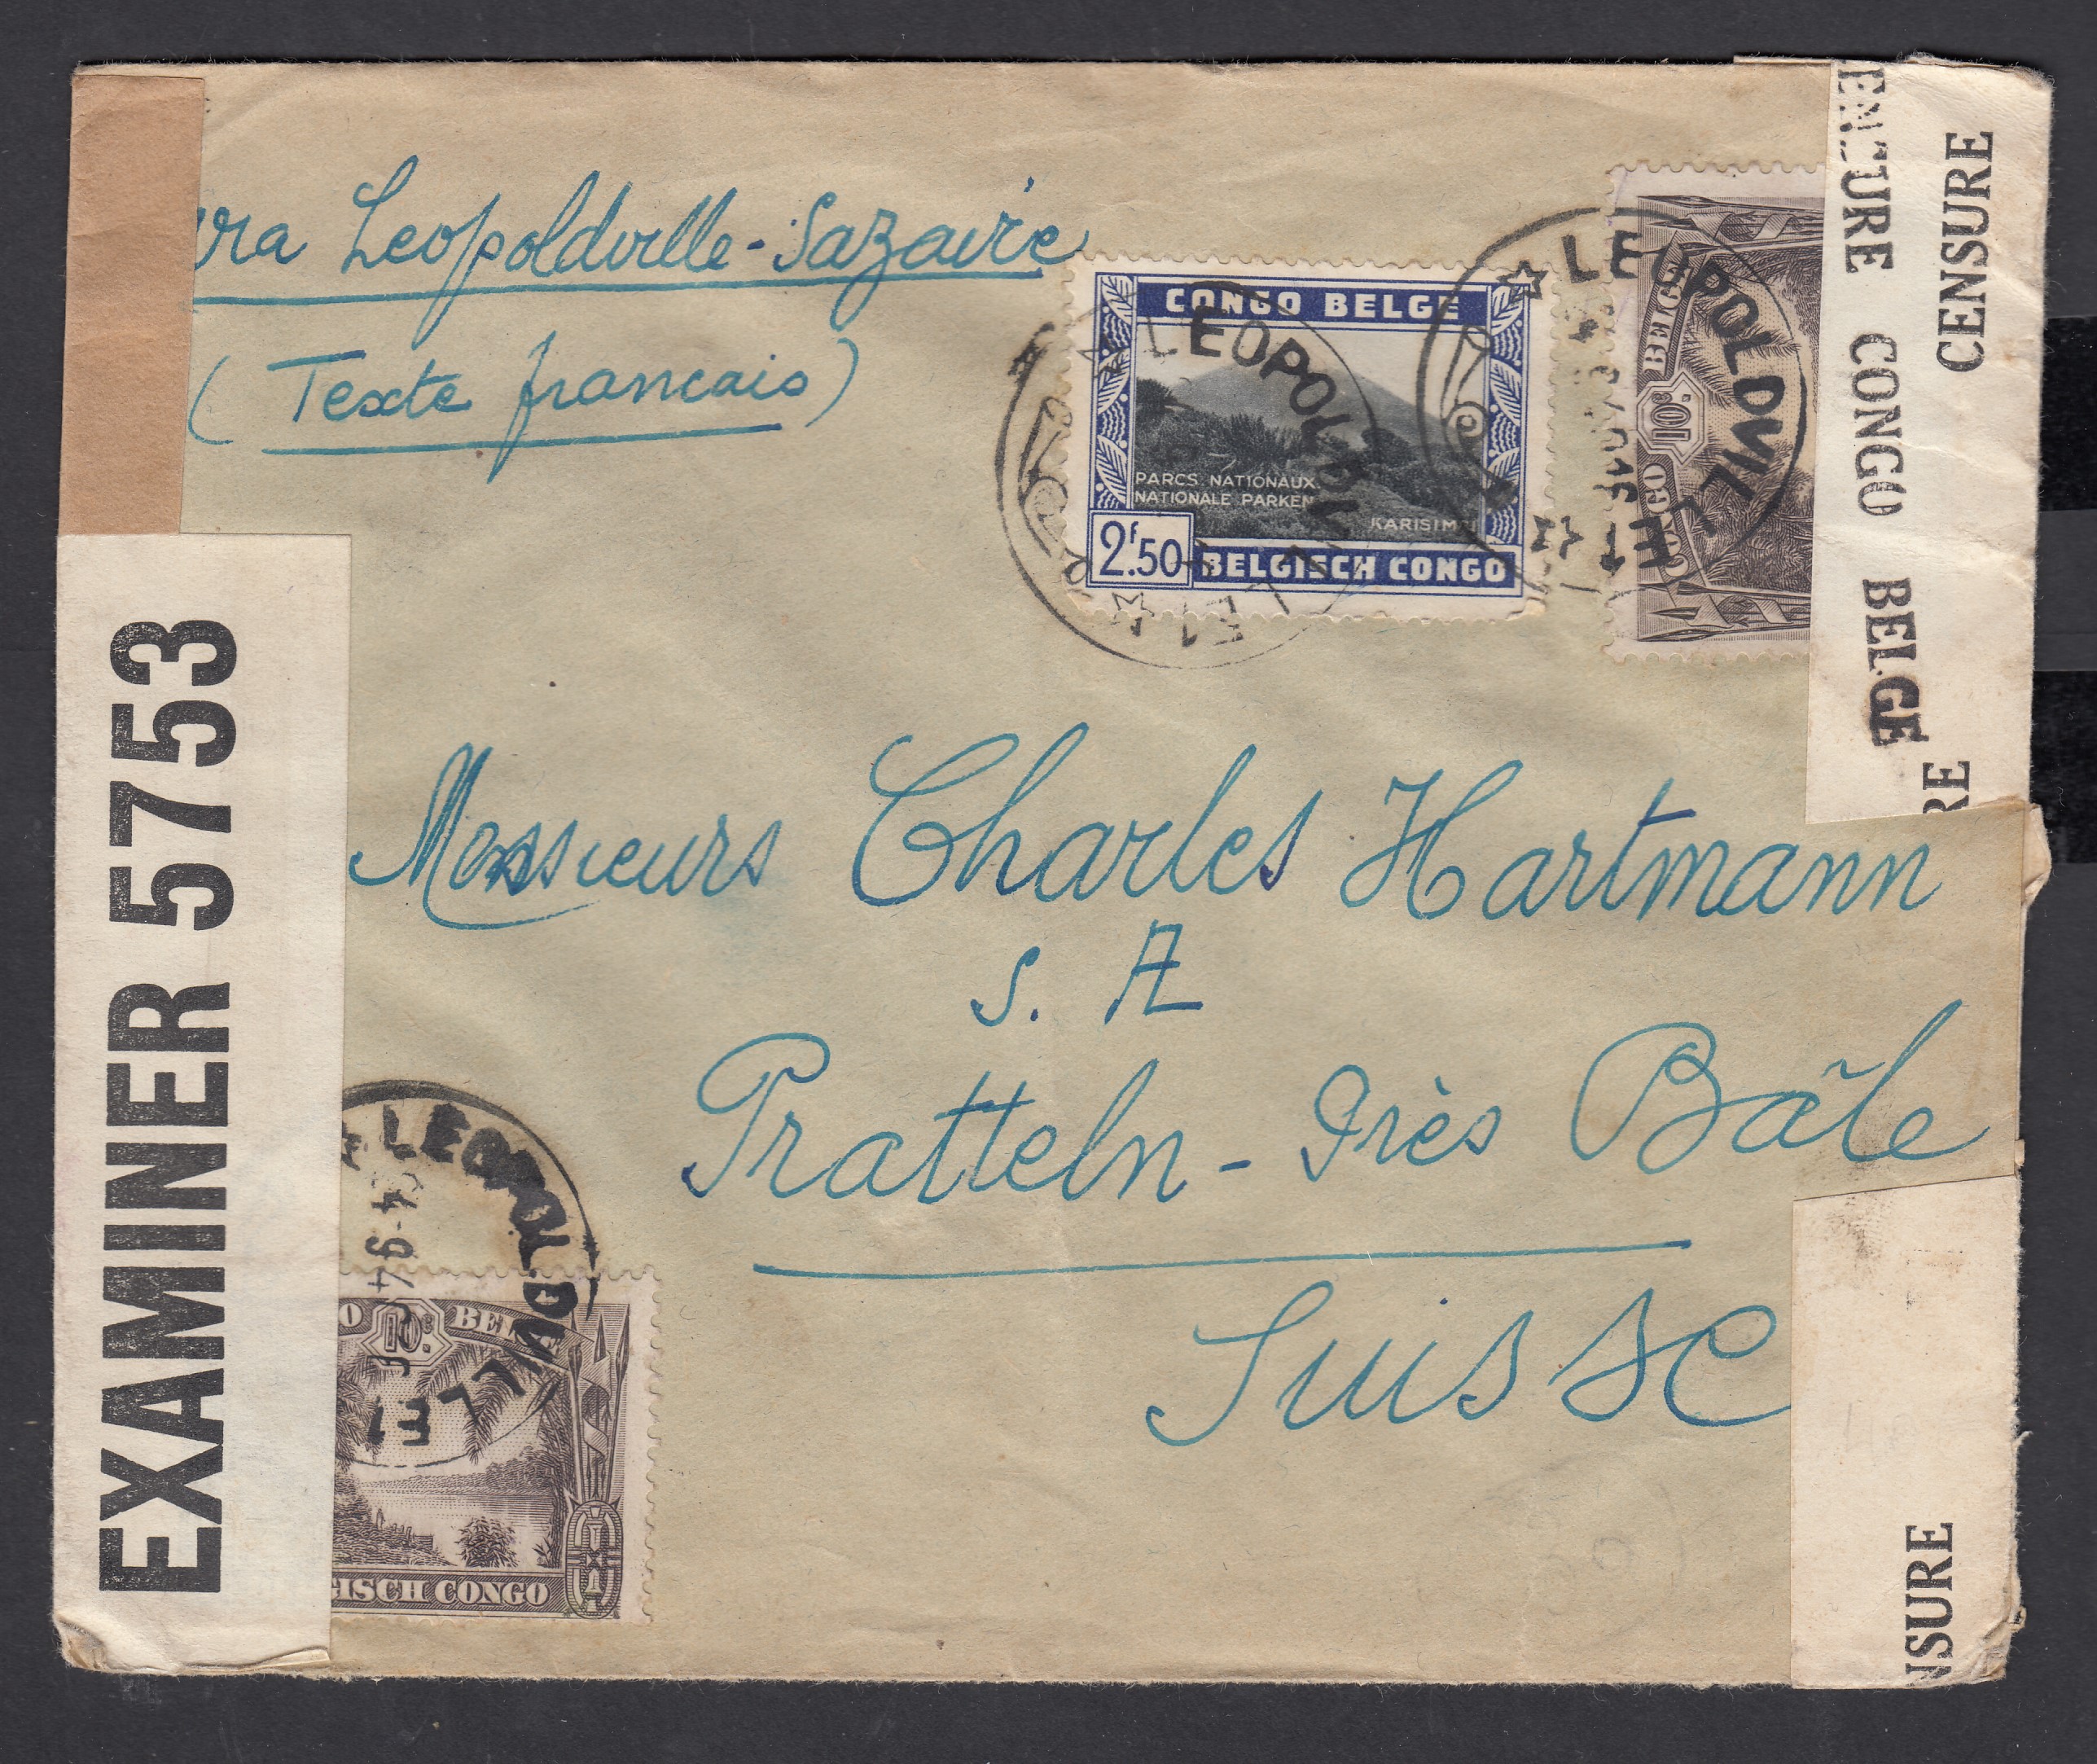 ra Leopoldville-Sazaire
(Texte francais)
CONGO BELGE
LEOPOLDVILLE 1
PARCS NATIONAUX
NATIONALE PARKEN
KARISIMBI
2f.50
BELGISCH CONGO
LEOPOLDVILLE 1
CONGO 10c. BELG
CENSURE CONGO BELGE
CENSURE
RE
EXAMINER 5753
Messieurs Charles Hartmann
S. A
Pratteln - Près Bâle
Suisse
LEOPOLDVILLE 1
O 10c. BELGE
GISCH CONGO
NSURE